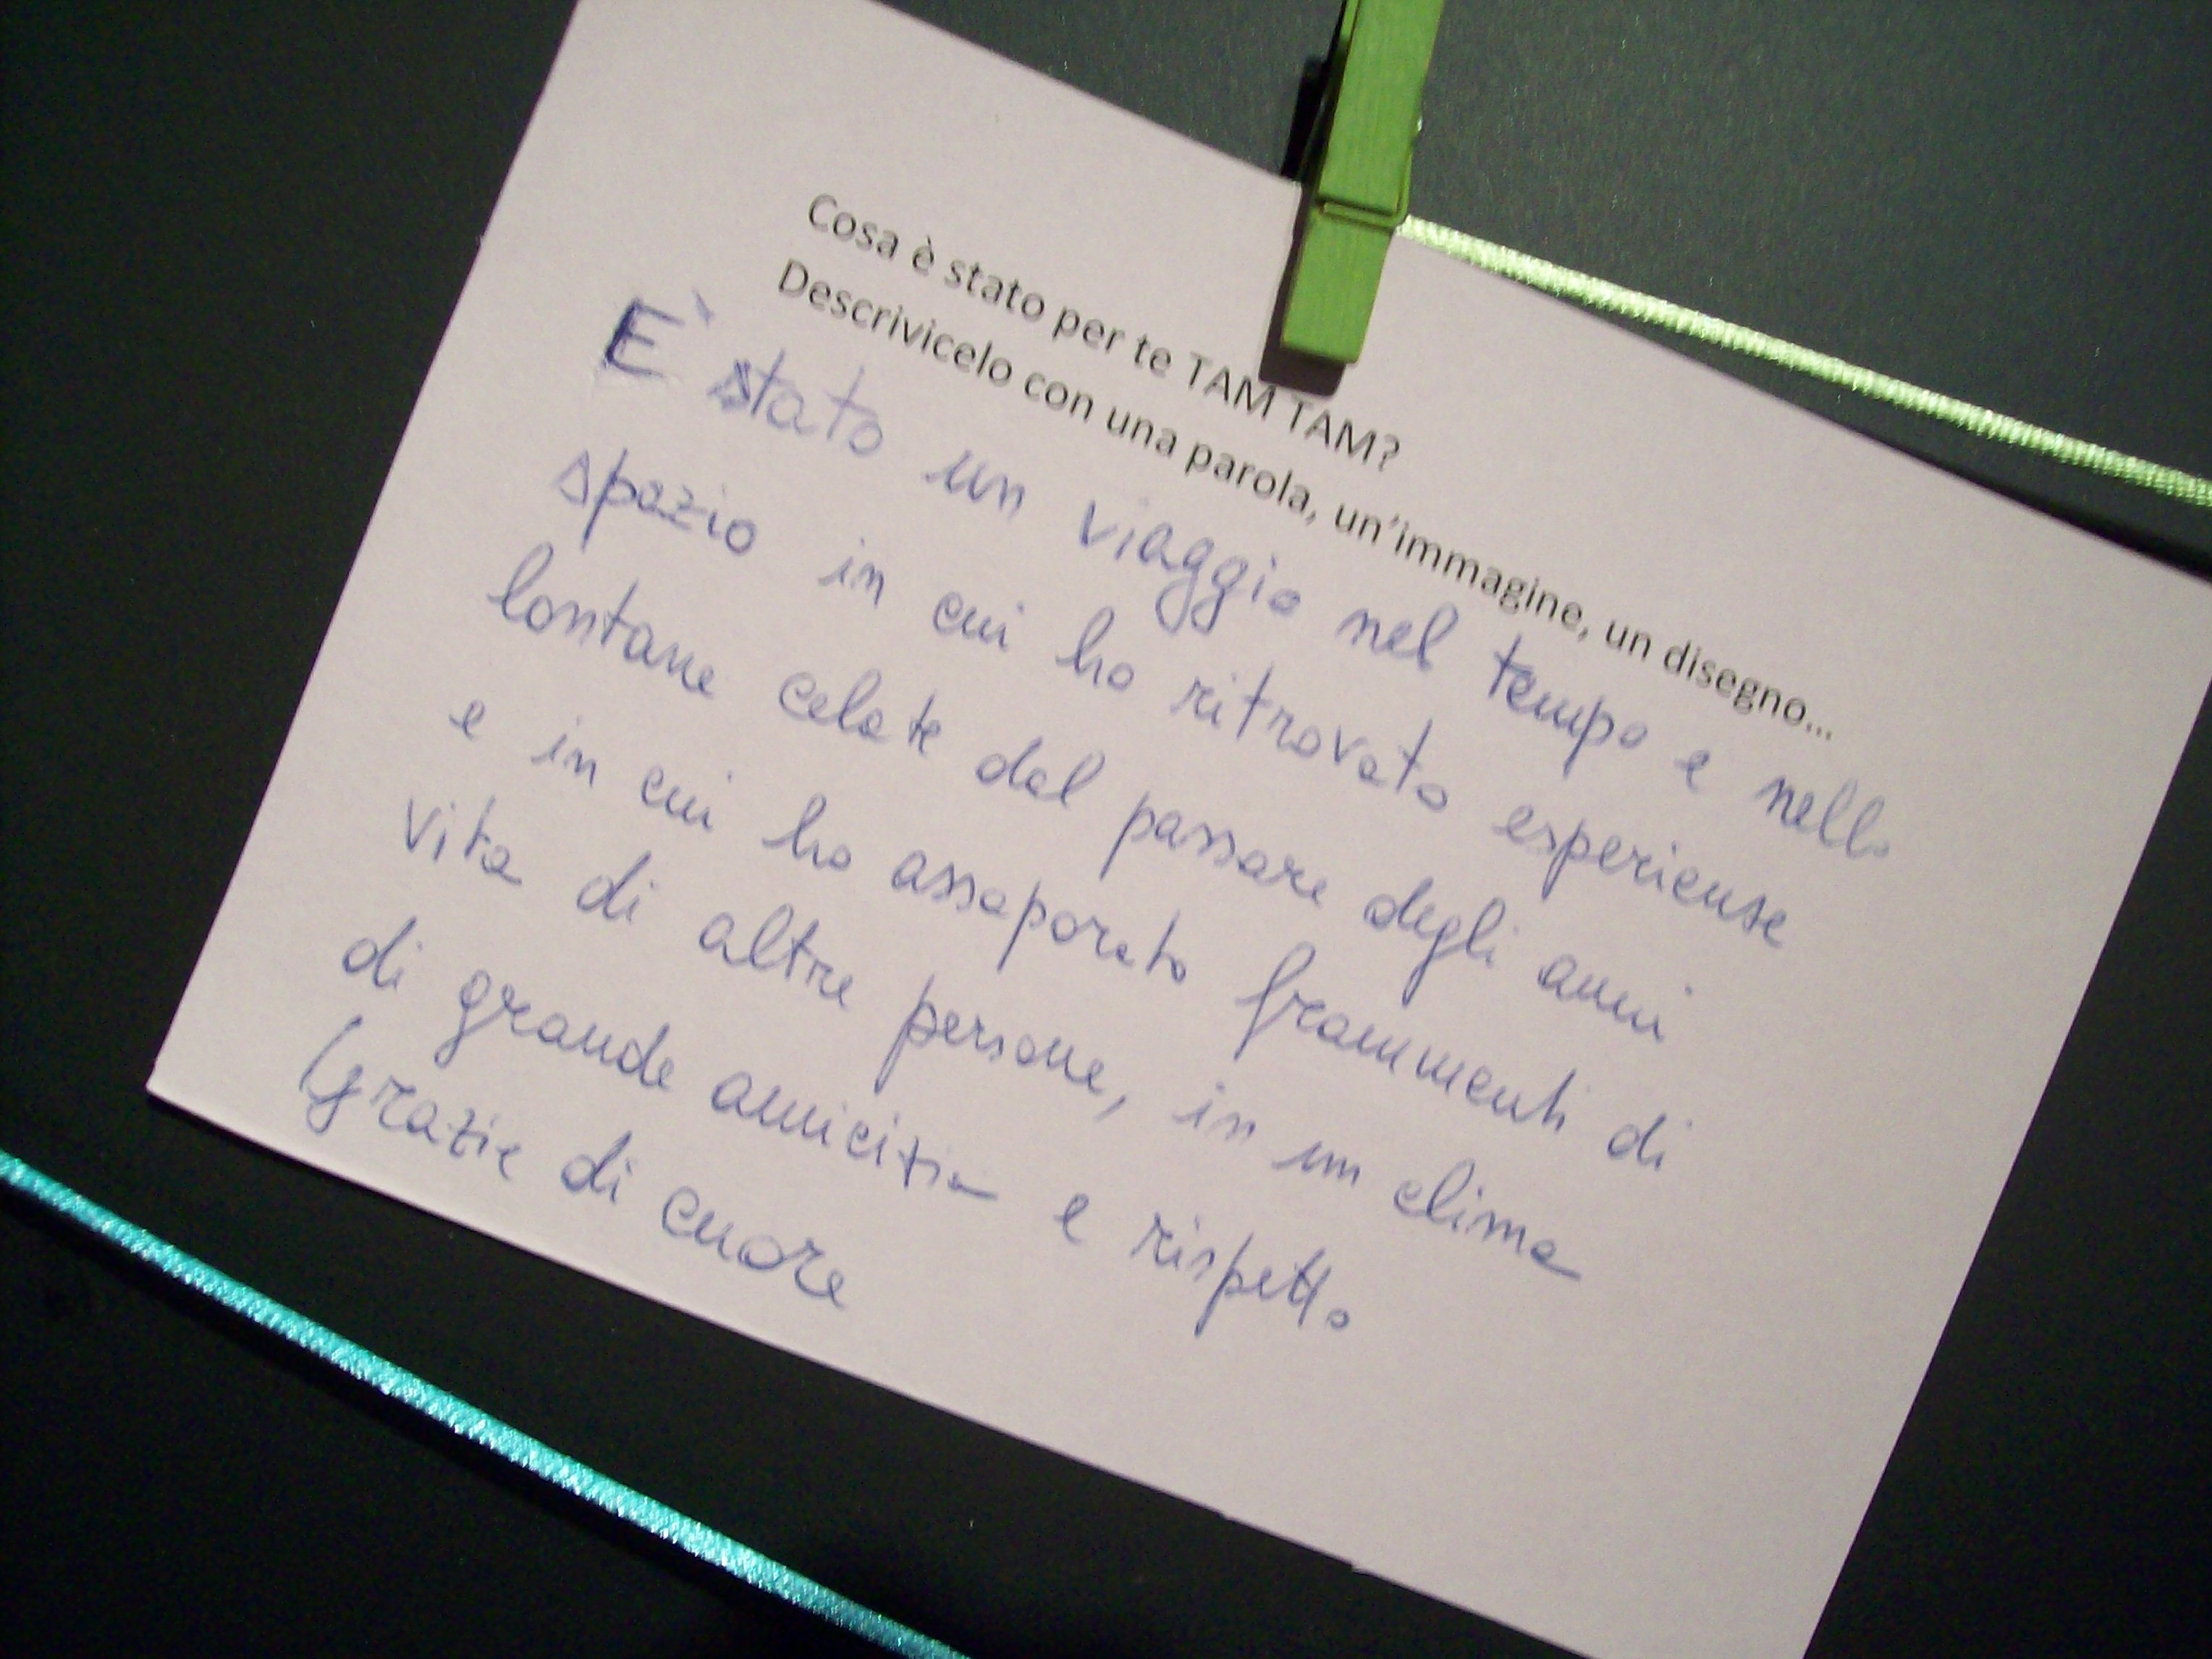 Cosa è stato per te TAM TAM?
Descrivicelo con una parola, un'immagine, un disegno...
E' stato un viaggio nel tempo e nello
spazio in cui ho ritrovato esperienze
lontane celate dal passare degli anni
e in cui ho assaporato frammenti di
vita di altre persone, in un clima
di grande amicizia e rispetto
(grazie di cuore